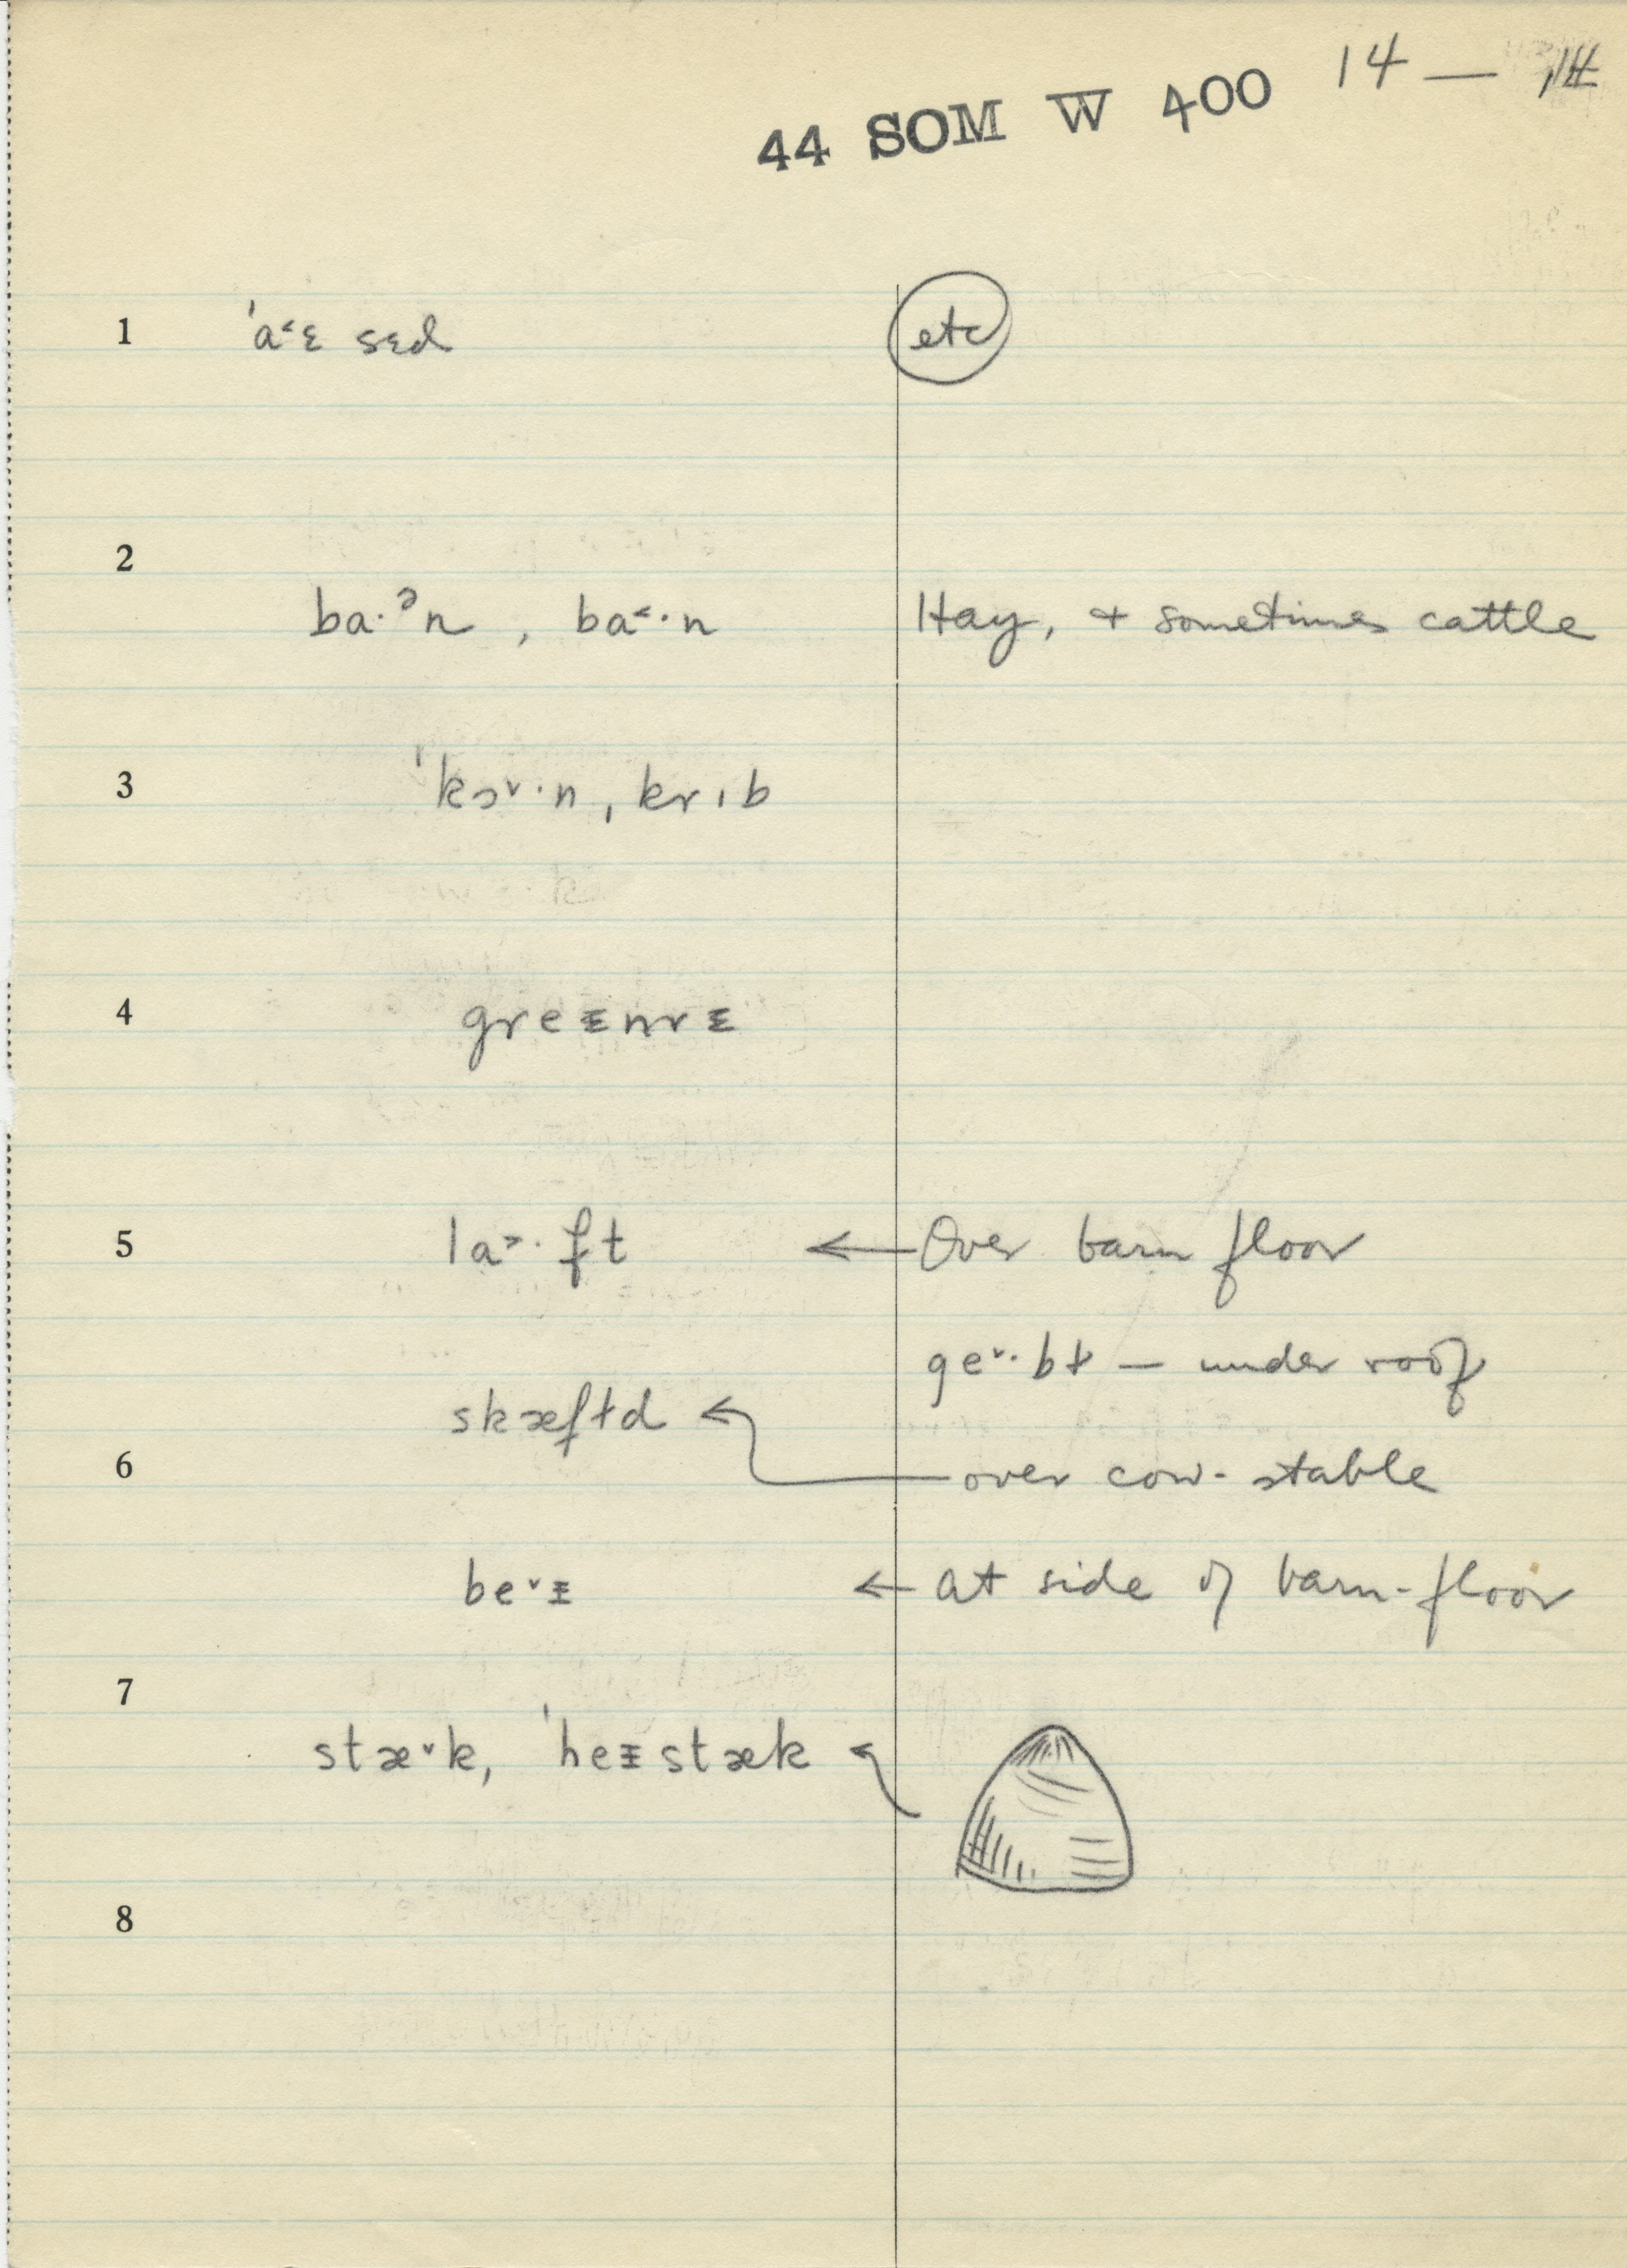 14 —
44 SOM W 400
1 ˈa˂ɛ sɛd etc
2
ba·ᵊn , ba˂·n Hay, + sometimes cattle
3 ˈkɔ˅·n, krɪb
4 greᵻnrᵻ
5 la˃·ft ← Over barn floor
ge˅·bɫ — under roof
skæfɫd ←
6 over cow-stable
be˅ᵻ ← at side of barn-floor
7
stæ˅k, ˈheᵻstæk ←
8